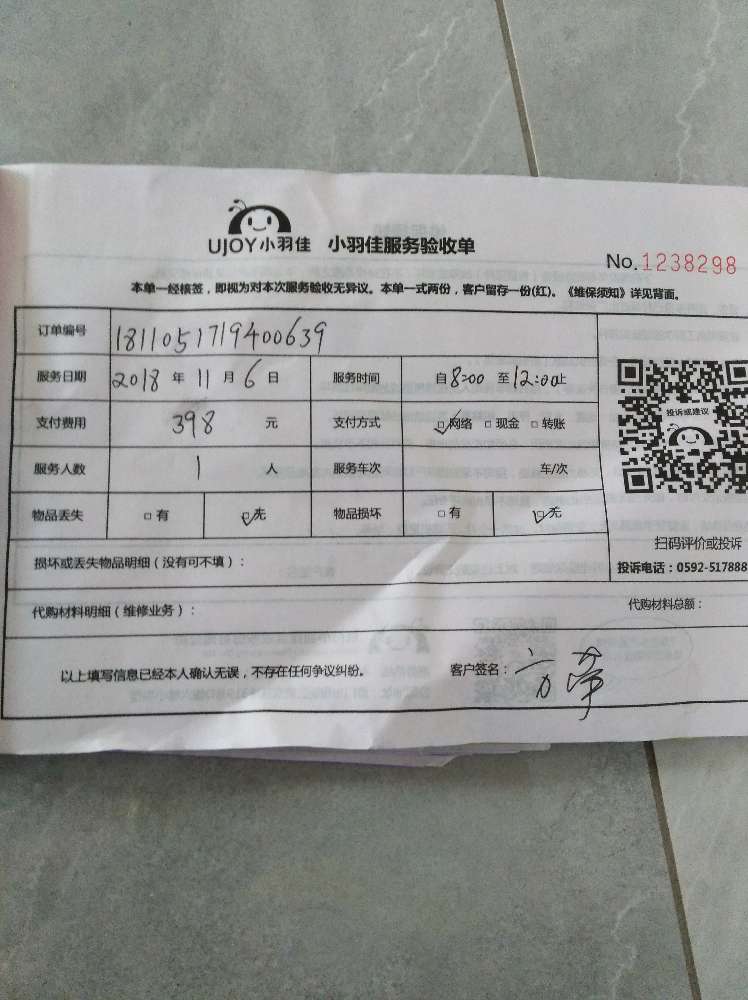 UJOY小羽佳 小羽佳服务验收单
No.1238298
本单一经核签，即视为对本次服务验收无异议。本单一式两份，客户留存一份(红)。《维保须知》详见背面。
订单编号 1811051719400639
服务日期 2018 年 11 月 6 日 服务时间 自 8:00 至 12:00 止
投诉或建议
支付费用 398 元 支付方式 ☑网络 □现金 □转账
服务人数 1 人 服务车次 车/次
物品丢失 □有 ☑无 物品损坏 □有 ☑无
扫码评价或投诉
损坏或丢失物品明细（没有可不填）：
投诉电话：0592-517888
代购材料明细（维修业务）： 代购材料总额：
以上填写信息已经本人确认无误，不存在任何争议纠纷。 客户签名：